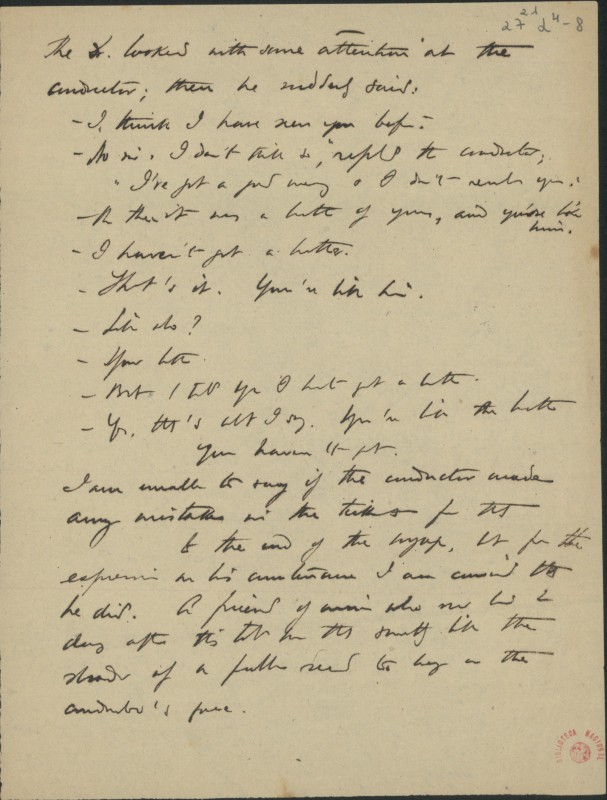 27 21 L4-8
The Dr. looked with some attention at the
conductor; then he suddenly said:
– I think I have seen you before.
– No sir, I don't think so", replied the conductor;
"I've got a good memory & I don't remember you."
– Ah then it was a brother of yours, and you're like
him.
– I haven't got a brother.
– That's it. You're like him.
– Like who?
– Your brother
– But I tell you I haven't got a brother.
– Yes, that's what I say. You're like the brother
you haven't got.
I am unable to say if the conductor made
any mistakes in the tickets for that
to the end of the voyage, but for the
expression on his countenance I am convinced that
he did. A friend of mine who saw him 2
days after this told me that something like the
shadow of a puzzle seemed to hang on the
conductor's face.
BIBLIOTECA NACIONAL